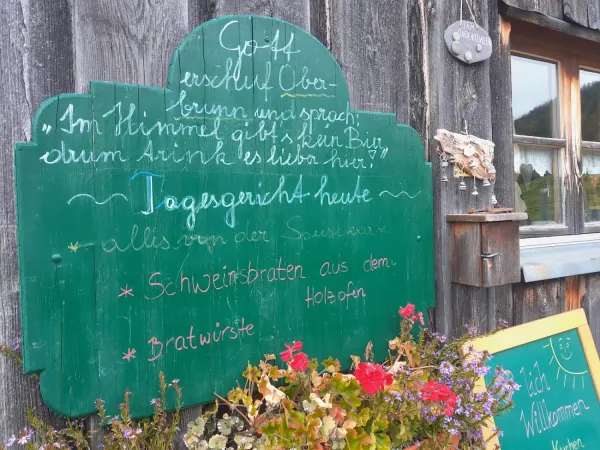 Gott
erschuf Ober-
brunn und sprach:
"Im Himmel gibt's kein Bier,
drum trink es lieber hier!"
~ Tagesgericht heute ~
* alles von der Speisekarte
* Schweinsbraten aus dem
Holzofen
* Bratwürste
Willkommen
Kuchen